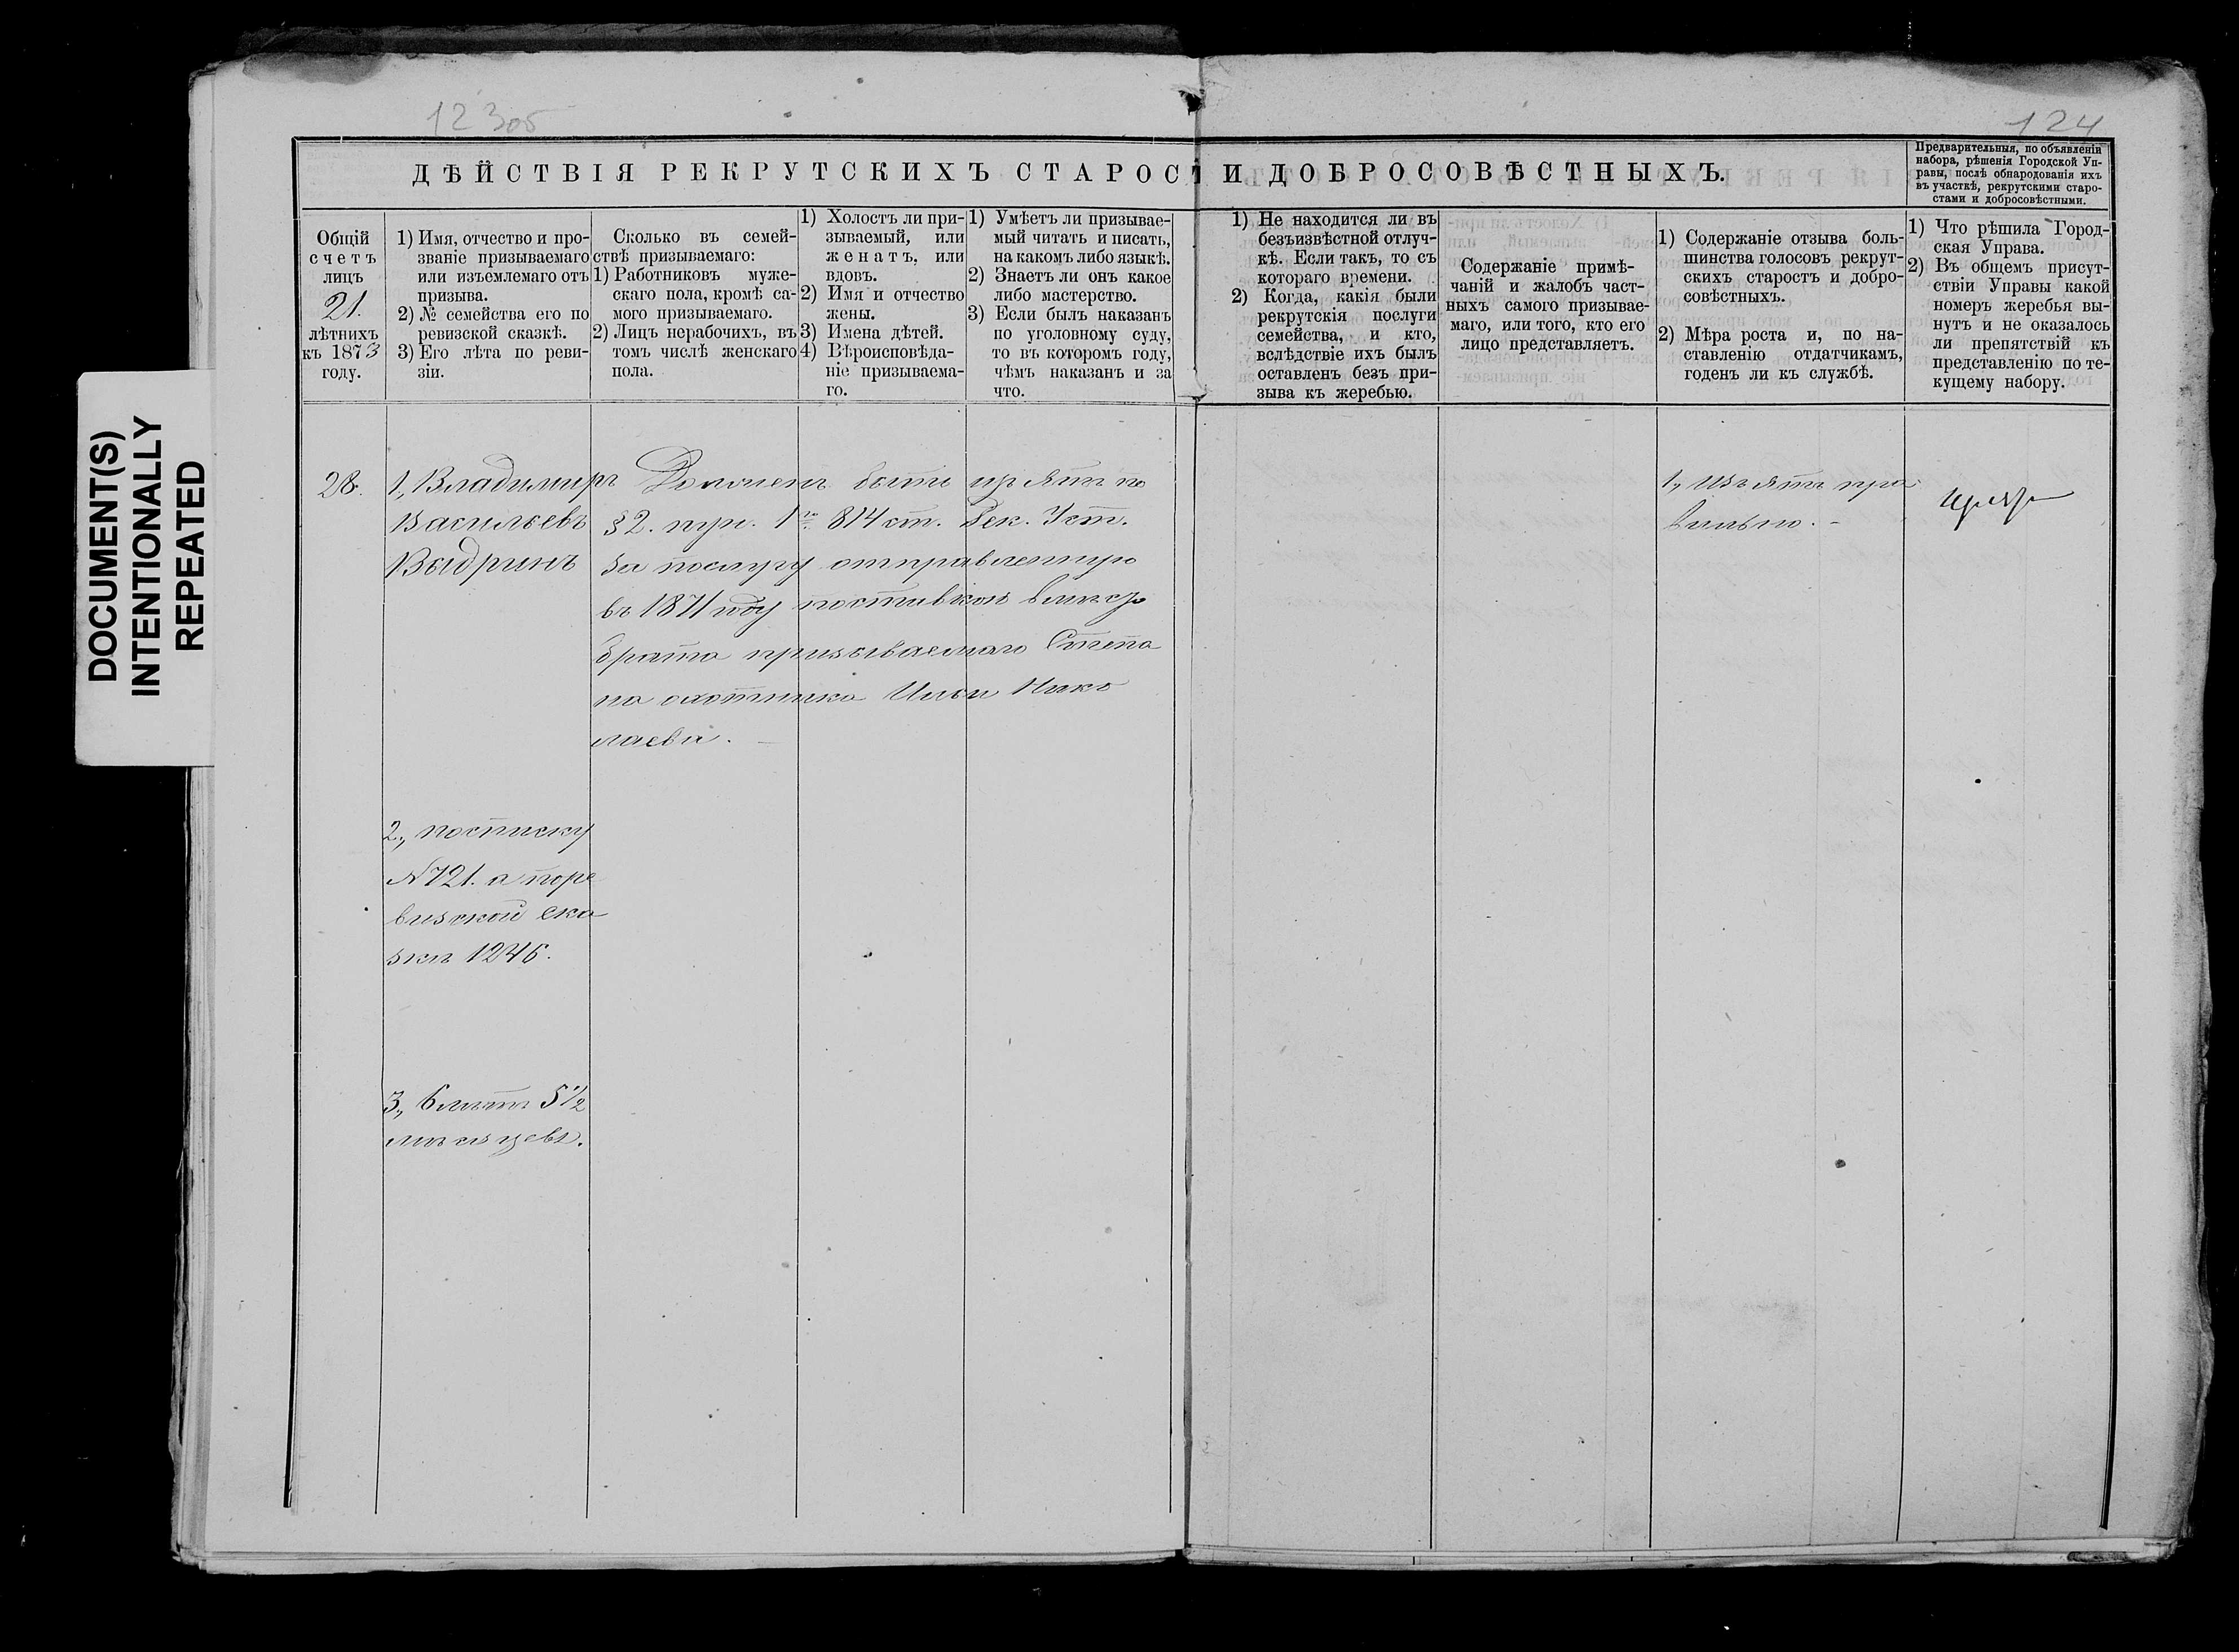 123об
124
ДѢЙСТВІЯ РЕКРУТСКИХЪ СТАРОСТ И ДОБРОСОВѢСТНЫХЪ.
Предварительныя, по объявленіи
набора, рѣшенія Городской Уп-
равы, послѣ обнародованія ихъ
въ участкѣ, рекрутскими старо-
стами и добросовѣстными.
Общій
счетъ
лицъ
21.
лѣтнихъ
къ 1873
году.
1) Имя, отчество и про-
званіе призываемаго
или изъемлемаго отъ
призыва.
2) № семейства его по
ревизской сказкѣ.
3) Его лѣта по реви-
зіи.
Сколько въ семей-
ствѣ призываемаго:
1) Работниковъ муже-
скаго пола, кромѣ са-
мого призываемаго.
2) Лицъ нерабочихъ, въ
томъ числѣ женскаго
пола.
1) Холостъ ли при-
зываемый, или
женатъ, или
вдовъ.
2) Имя и отчество
жены.
3) Имена дѣтей.
4) Вѣроисповѣда-
ніе призываема-
го.
1) Умѣетъ ли призывае-
мый читать и писать,
на какомъ либо языкѣ.
2) Знаетъ ли онъ какое
либо мастерство.
3) Если былъ наказанъ
по уголовному суду,
то въ которомъ году,
чѣмъ наказанъ и за
что.
1) Не находится ли въ
безъизвѣстной отлуч-
кѣ. Если такъ, то съ
котораго времени.
2) Когда, какія были
рекрутскія послуги
семейства, и кто,
вслѣдствіе ихъ былъ
оставленъ безъ при-
зыва къ жеребью.
Содержаніе примѣ-
чаній и жалобъ част-
ныхъ самого призывае-
маго, или того, кто его
лицо представляетъ.
1) Содержаніе отзыва боль-
шинства голосовъ рекрут-
скихъ старостъ и добро-
совѣстныхъ.
2) Мѣра роста и, по на-
ставленію отдатчикамъ,
годенъ ли къ службѣ.
1) Что рѣшила Город-
ская Управа.
2) Въ общемъ присут-
ствіи Управы какой
номеръ жеребья вы-
нутъ и не оказалось
ли препятствій къ
представленію по те-
кущему набору.
28.
1., Владимиръ
Васильевъ
Выдринъ
Долженъ быть изъятъ по
§ 2. пун. 1го 814 ст. Рек. Уст.
за послугу отправленную
въ 1871 году поставкою вмѣсто
брата призываемаго Степа
на охотника Ильи Нико
лаева. —
1., Изъятъ пра
вильно. -
2., по списку
№ 721. а поре
визской ска
зкѣ 1246.
3., 6 лѣтъ 5 1/2
мѣсяцевъ.
DOCUMENT(S)
INTENTIONALLY
REPEATED